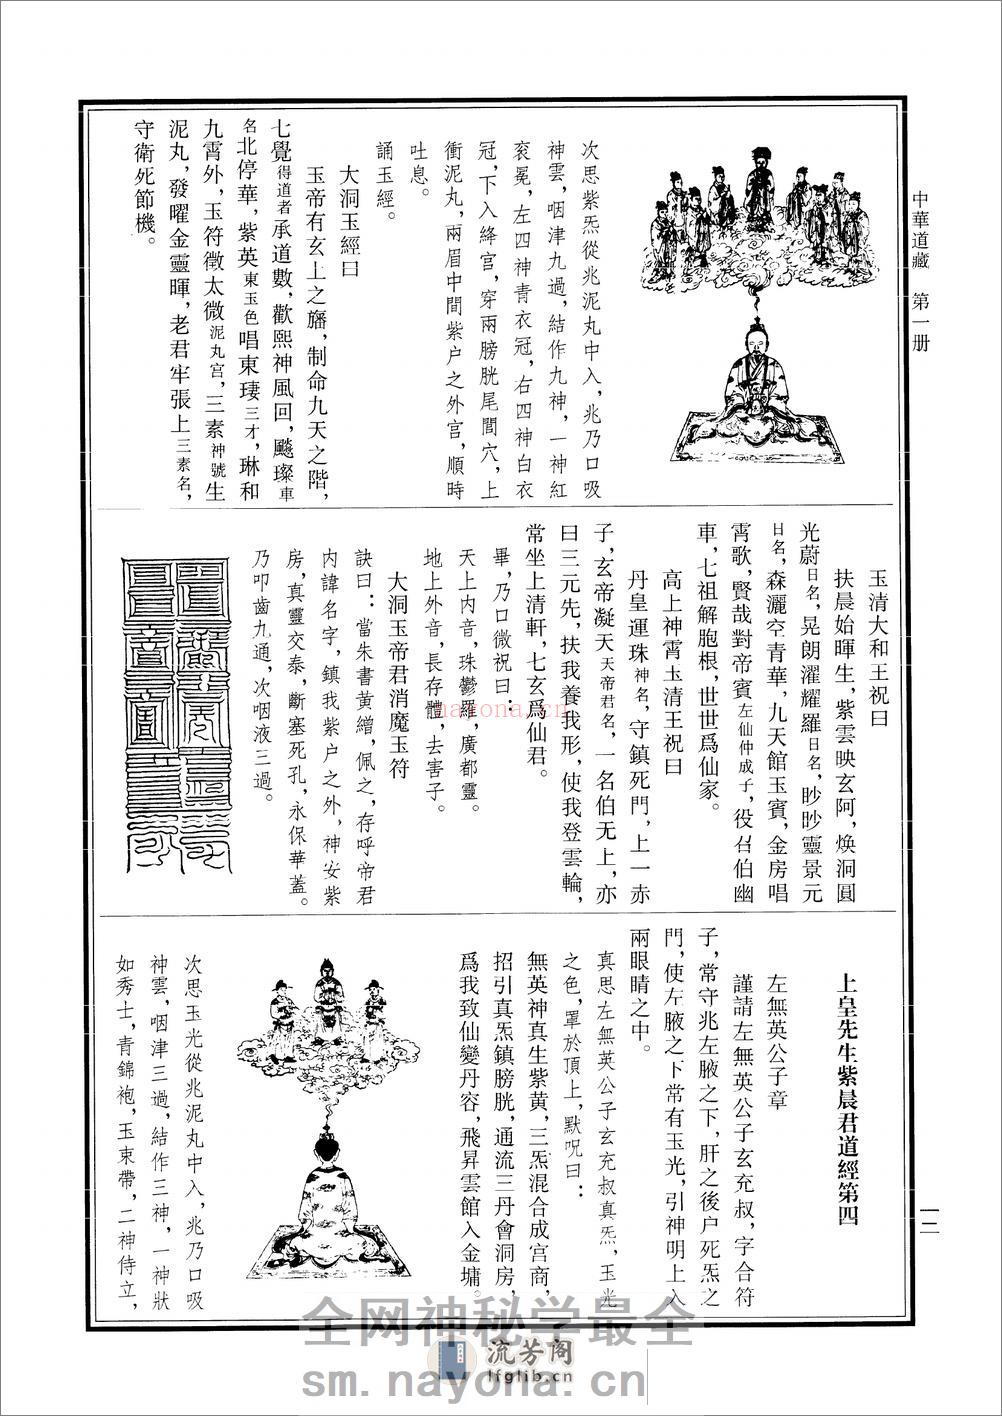 中華道藏 第一册
一二
次思紫炁從兆泥丸中入，兆乃口吸
神雲，咽津九過，結作九神，一神紅
衮冕，左四神青衣冠，右四神白衣
冠，下入絳宫，穿兩膀胱尾閭穴，上
衝泥丸，兩眉中間紫户之外宫，順時
吐息。
誦玉經。
大洞玉經曰
玉帝有玄上之旛，制命九天之階，
七覺得道者承道數，歡熙神風回，飈璨車
名北停華，紫英東玉色唱東㻏三才，琳和
九霄外，玉符徵太微泥丸宫，三素神號生
泥丸，發曜金靈暉，老君牢張上三素名，
守衛死節機。
玉清大和王祝曰
扶晨始暉生，紫雲映玄阿，焕洞圓
光蔚日名，晃朗濯耀羅日名，眇眇靈景元
日名，森灑空青華，九天館玉賓，金房唱
霄歌，賢哉對帝賓左仙仲成子，役召伯幽
車，七祖解胞根，世世爲仙家。
高上神霄玉清王祝曰
丹皇運珠神名，守鎮死門，上一赤
子，玄帝凝天天帝君名，一名伯无上，亦
曰三元先，扶我養我形，使我登雲輪，
常坐上清軒，七玄爲仙君。
畢，乃口微祝曰：
天上内音，珠鬱羅，廣都靈。
地上外音，長存體，去害子。
大洞玉帝君消魔玉符
訣曰：當朱書黄繒，佩之，存呼帝君
内諱名字，鎮我紫户之外，神安紫
房，真靈交泰，斷塞死孔，永保華蓋。
乃叩齒九通，次咽液三過。
上皇先生紫晨君道經第四
左無英公子章
謹請左無英公子玄充叔，字合符
子，常守兆左腋之下，肝之後户死炁之
門，使左腋之下常有玉光，引神明上入
兩眼睛之中。
真思左無英公子玄充叔真炁，玉光
之色，罩於頂上，默呪曰：
無英神真生紫黄，三炁混合成宫商，
招引真炁鎮膀胱，通流三丹會洞房，
爲我致仙變丹容，飛昇雲館入金墉。
次思玉光從兆泥丸中入，兆乃口吸
神雲，咽津三過，結作三神，一神狀
如秀士，青錦袍，玉束帶，二神侍立，
nayona.cn
全网神秘学最全
流芳阁
lfglib.cn
sm.nayona.cn